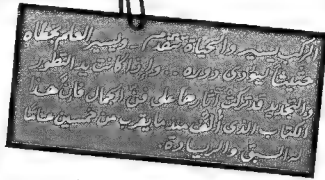 الركب يسير والحياة تتقدم .. ويسير العلم بخطاه
حثيثا ليؤدى دوره .. وإذا كانت يد التطور
والتجديد قد تركت آثارها على فن الجمال فإن هذا
الكتاب الذى ألف منذ ما يقرب من خمسين عاما
له السبق والريادة.